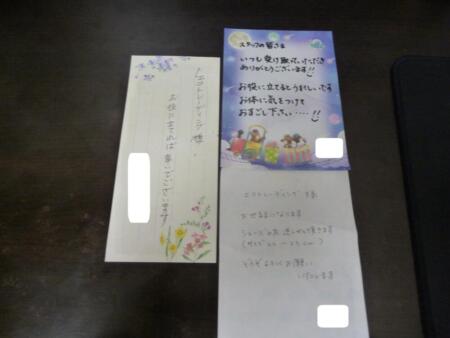 エコトレーディング様
お役に立てれば幸いでございます
スタッフの皆さま
いつも受け取っていただき
ありがとうございます!!
お役に立てるとうれしいです
お体に気をつけて
おすごし下さい・・・・!!
エコトレーディング 様
お世話になります
シューズをお送りさせて頂きます
どうぞよろしくお願い